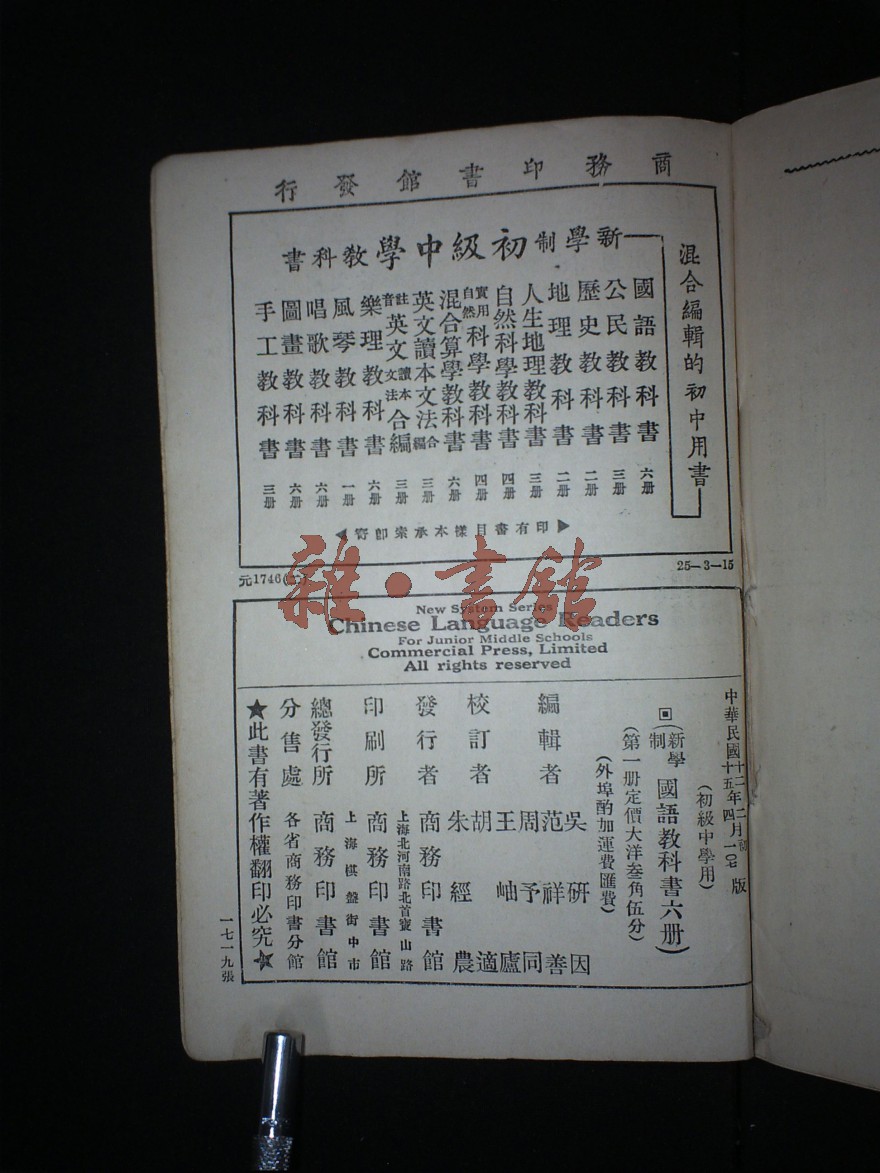 商務印書館發行
混合編輯的初中用書
新學制初級中學教科書
國語教科書 六册
公民教科書 三册
歷史教科書 二册
地理教科書 二册
人生地理教科書 三册
自然科學教科書 四册
實用自然科學教科書 四册
混合算學教科書 六册
英文讀本文法合編 三册
註音英文讀本文法合編 三册
樂理教科書 六册
風琴教科書 一册
唱歌教科書 六册
圖畫教科書 六册
手工教科書 三册
▶印有書目樣本承索即寄◀
元1746(二) 25—3—15
雜·書館
New System Series
Chinese Language Readers
For Junior Middle Schools
Commercial Press, Limited
All rights reserved
中華民國十二年二月初版
十五年四月一〇七版
(初級中學用)
回(新學制 國語教科書六册)
(第一册定價大洋叁角伍分)
(外埠酌加運費匯費)
編輯者 吳研因
范祥善
周予同
王岫廬
校訂者 胡適
朱經農
發行者 商務印書館
上海北河南路北首寶山路
印刷所 商務印書館
上海棋盤街中市
總發行所 商務印書館
分售處 各省商務印書分館
★此書有著作權翻印必究★
一七一九張